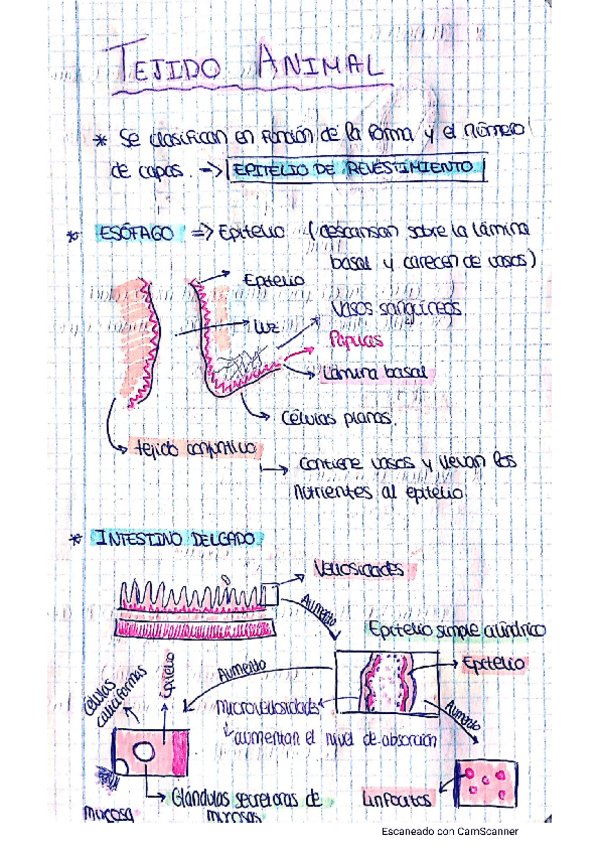 TEJIDO ANIMAL
* Se clasifican en función de la forma y el número
de capas. => EPITELIO DE REVESTIMIENTO
* ESÓFAGO => Epitelio (descansan sobre la lámina
basal y carecen de vasos)
Epitelio
Vasos sanguíneos
Luz
Papilas
Lámina basal
Células planas.
tejido conjuntivo
contiene vasos y llevan los
nutrientes al epitelio
* INTESTINO DELGADO
Vellosidades
Aumento
Epitelio simple cilíndrico
Epitelio
Aumento
Epitelio
Células
caliciformas
Microvellosidades
aumentan el nivel de absorción
Aumento
Glándulas secretoras de
mucosas
Linfocitos
mucosa
Escaneado con CamScanner